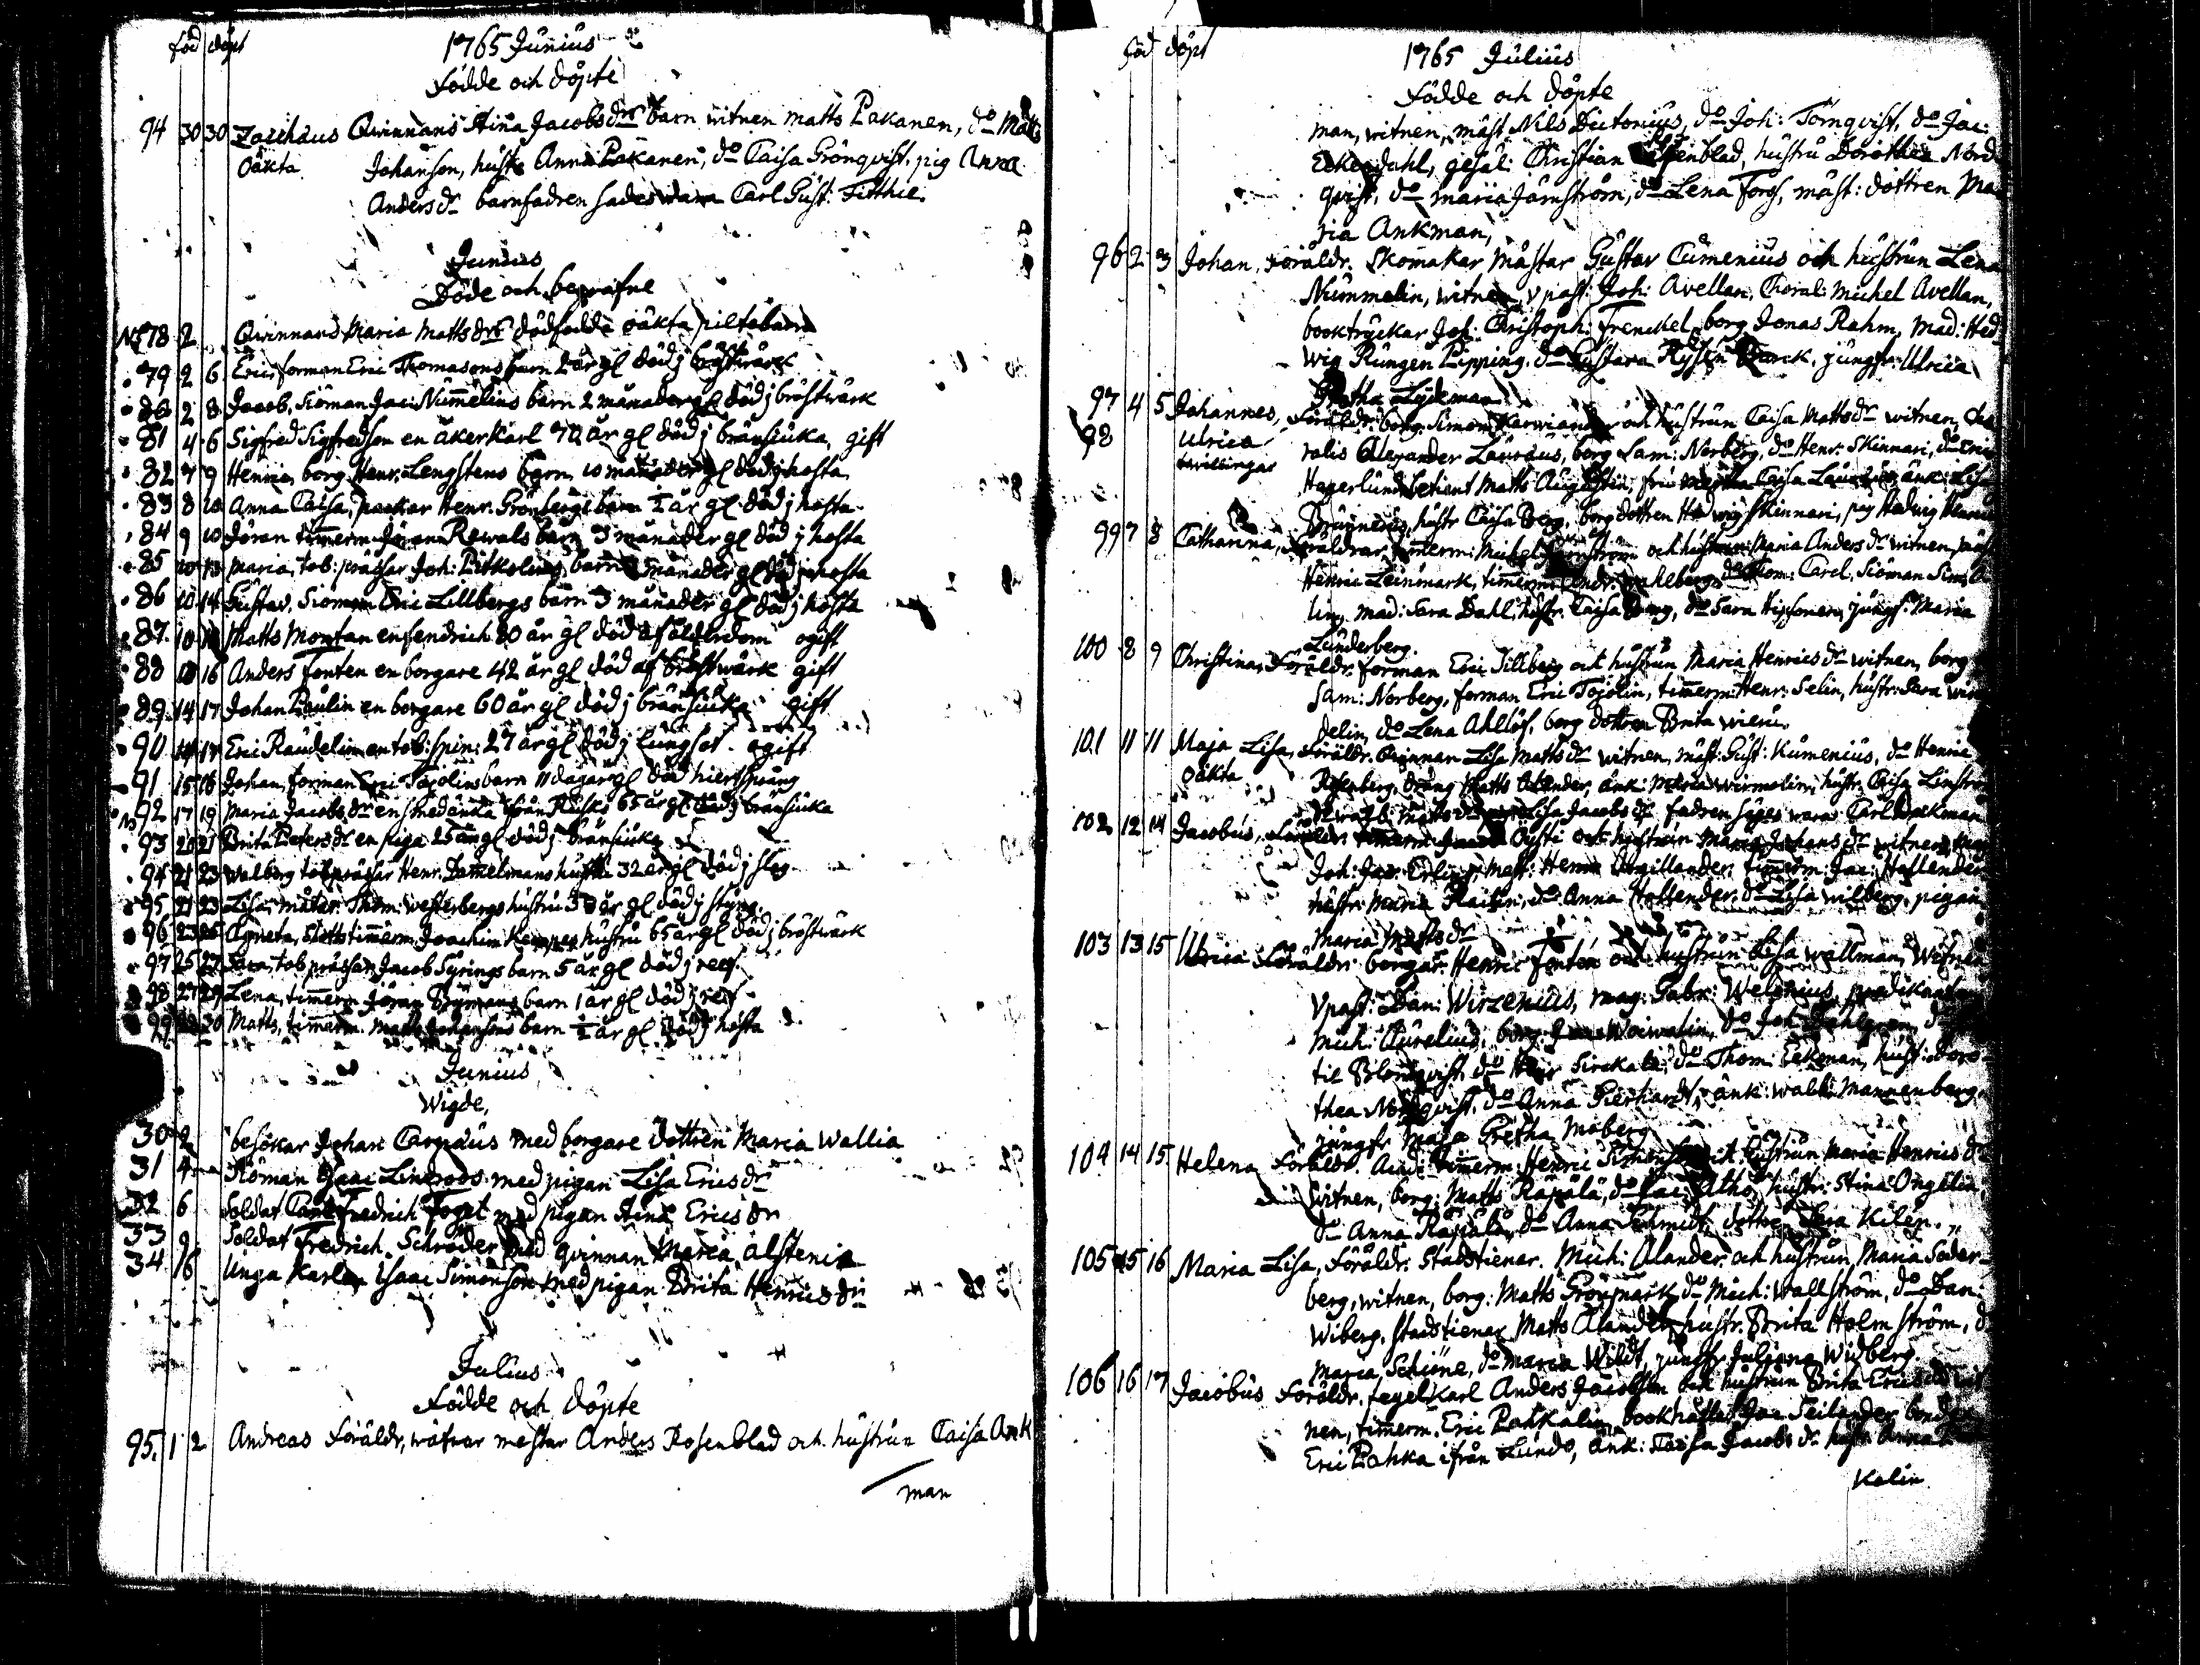 föd döpt
1765 Junius
Födde och döpte
94 30 30 Zachäus Qwinnans Stina Jacobs drs barn witnen matts Pakanen, do Matts
oäkta Johanson, hustr Anna Pakanen, do Caisa Grönqvist, pig Anna
Anders dr barnfadren sades wara Carl Gust: Fitthie.
Junius
Döde och begrafne
No 78 2 Qwinnans Maria Matts drs dödfödde oäkta piltebarn
79 2 6 Eric, forman Eric Thomasons barn 2 år gl död j bröstwärk
80 2 8 Jacob, Siöman Jac: Nummelins barn 2 månader gl död j bröstwärk
81 4 6 Sigfred Sigfredson en åkerkarl 70 år gl död j bränsiuka, gift
82 7 9 Henric, borg Henr: Lengstens barn 10 månader gl död j hosta
83 8 10 Anna Caisa, packar Henr. Grönbergs barn ½ år gl död j hosta
84 9 10 Jöran timerm Jöran Rewals barn 3 månader gl död j hosta
85 10 13 Maria, tob: prässar Joh: Pitkolins barn månader gl död j hosta
86 10 14 Gustav, Siöman Eric Lillbergs barn 3 månader gl död j hosta
87 10 Matts Montan en fendrich 80 år gl död af ålderdom ogift
88 16 Anders Fonten en borgare 42 år gl död af bröstwärk gift
89 14 17 Johan Paulin en borgare 60 år gl död j bränsiuka gift
90 17 Eric Raudelin en tob: spin: 27 år gl död j lungsot ogift
91 15 16 Johan, forman Eric Tojolins barn 11 dagar gl död hiertsprång
92 17 19 Maria Jacobs dr en smed änka från 65 år gl död j bränsiuka
93 20 21 Brita Peters dr en piga 25 år gl död j bränsiuka
94 21 23 Walborg tob prässar Henr. hustru 32 år gl död j slag
95 21 23 Lisa, mäter: Thom: Westerbergs hustru år gl död j styng
96 23 25 Agneta, Slotts timerm Joachim hustru 65 år gl död j bröstwärk
97 25 27 tob prässar Jacob Syrings barn 5 år gl död j
98 27 29 Lena, timerm Jöran barn 1 år gl död j
99 30 Matts, timerm Matts Johansons barn ½ år gl död j hosta
Junius
Wigde,
30 2 besökar Johan Carpäus med borgare dottren Maria Wallia
31 4 Siöman Isaac Lindroos med pigan Lisa Erics dr
32 6 Soldat Carl Fredrich Foget med pigan Stina Erics dr
33 9 Soldat Fredrich Schröder med qvinnan Maria Alstenia
34 16 Unga Karlen Isaac Simonson med pigan Brita Henrics dr
Julius
Födde och döpte
95. 1 2 Andreas Föräldr, wäfvar mestar Anders Rosenblad och hustrun Caisa Ank
man
föd döpt
1765 Julius
Födde och döpte
man, witnen, mäst Nils Dictorius, do Joh: Törnqvist, do Jac:
Eckendahl, gesäl: Christian Rosenblad, hustru Dorothea Nord
qvist, do Maria Järnström, do Lena Forss, mäst: dottren Ma
ria Ankman,
96 2 3 Johan, Föräldr. Skomakar Mästar Gustav Cumenius och hustrun Lena
Nummelin, witnen, v past: Joh: Avellan, Choral: Michel Avellan,
booktryckar Joh: Christoph: Frenckel, borg Jonas Rahm, Mad: Hed
wig Rungen Pipping, do Gustava jungfr: Ulrica
Gretha Lydeman
97 4 5 Johannes, Föräldr. borg. Simon Karwiander och hustrun Caisa Matts dr witnen, Cho
98 Ulrica ralis Alexander Lauräus, borg Sam: Norberg, do Henr: Skinnari, do Eric
twillingar Hagerlund, betient Matts Augustin, fru Caisa änk: Lisa
hustr Caisa Berg, borg dottren Hedwig Skinnari, pig Hedwig
99 7 8 Catharina, Föräldrar, timerm: Michel och hustrun Maria Anders dr witnen,
Henric Leinmark, timerm: Andr. Wahlberg, do Thom: Carel, Siöman Sim:
lin, mad: Sara Dahl, hustr. Caisa do Sara jungf: Maria
Lunderberg.
100 8 9 Christina, Föräldr. forman Eric Tillberg och hustrun Maria Henrics dr witnen, borg
Sam: Norberg, forman Eric Tojolin, timerm: Henr: Selin, hustr: Sara Win
delin, do Lena Ahllöf, borg dottren Brita Wieru.
101 11 11 Maja Lisa, Föräldr. Qvinnan Lisa Matts dr witnen, mäst: Gust: Kumenius, do Henric
oäkta Rosenberg, dräng Matts Alander, änk: Maria Wirmelin, hustr. Caisa Linstr
Lisa Jacobs dr fadren säges wara Carl Backman
102 12 14 Jacobus, Föräldr. timerm Jacob Austi och hustrun Maria Johans dr witnen,
Joh: Jac: Erling, mäst: Henric Argillander, timerm: Jac: Hollender
hustr: Maria do Anna Hollender, do Lisa Wilberg, pigan
Maria Matts dr
103 13 15 Ulrica Föräldr. borgar: Henric Fontén och hustrun Lisa Wallman, Witnen
Vpast: Dan: Wirzenius, mag: Gabr: Welonius, predikant
Mich: Aurelius, borg: do Joh: Dahlgren, do
til Blomqvist, do Henr Sirckala, do Thom: Eekman, hust: Doro-
thea Nordqvist, do Anna Gierhardt, änk: Walb: Mannenberg,
jungfr Maja Gretha Moberg
104 14 15 Helena Föräldr. timerm: Henric och hustrun Maria Henrics dr
witnen, borg: Matts Räpälä, do Jac: Alho, hustr: Stina Ongelin
do Anna Räpälä, do Anna Schmidt, dottr: Kilen.
105 15 16 Maria Lisa, Föräldr. Stadstienar. Mich: Alander och hustrun Maria Söder-
berg, witnen, borg: Matts Grönmark, do Mich: Wallström, do Dan:
Wiberg, stadstienar Matts Alander, hustr. Brita Holmström, d
Maria Schiöne, do Maria Wildt, jungfr Juljana Widberg
106 16 17 Jacobus Föräldr. tegelkarl Anders Jacobson och hustrun Brita Erics dr wit
nen, timerm: Eric bookhållar Jac Seilander, bonden
Eric Pahka ifrån Lundo, änk: Caisa Jacobs dr hustr Anna
Kalin